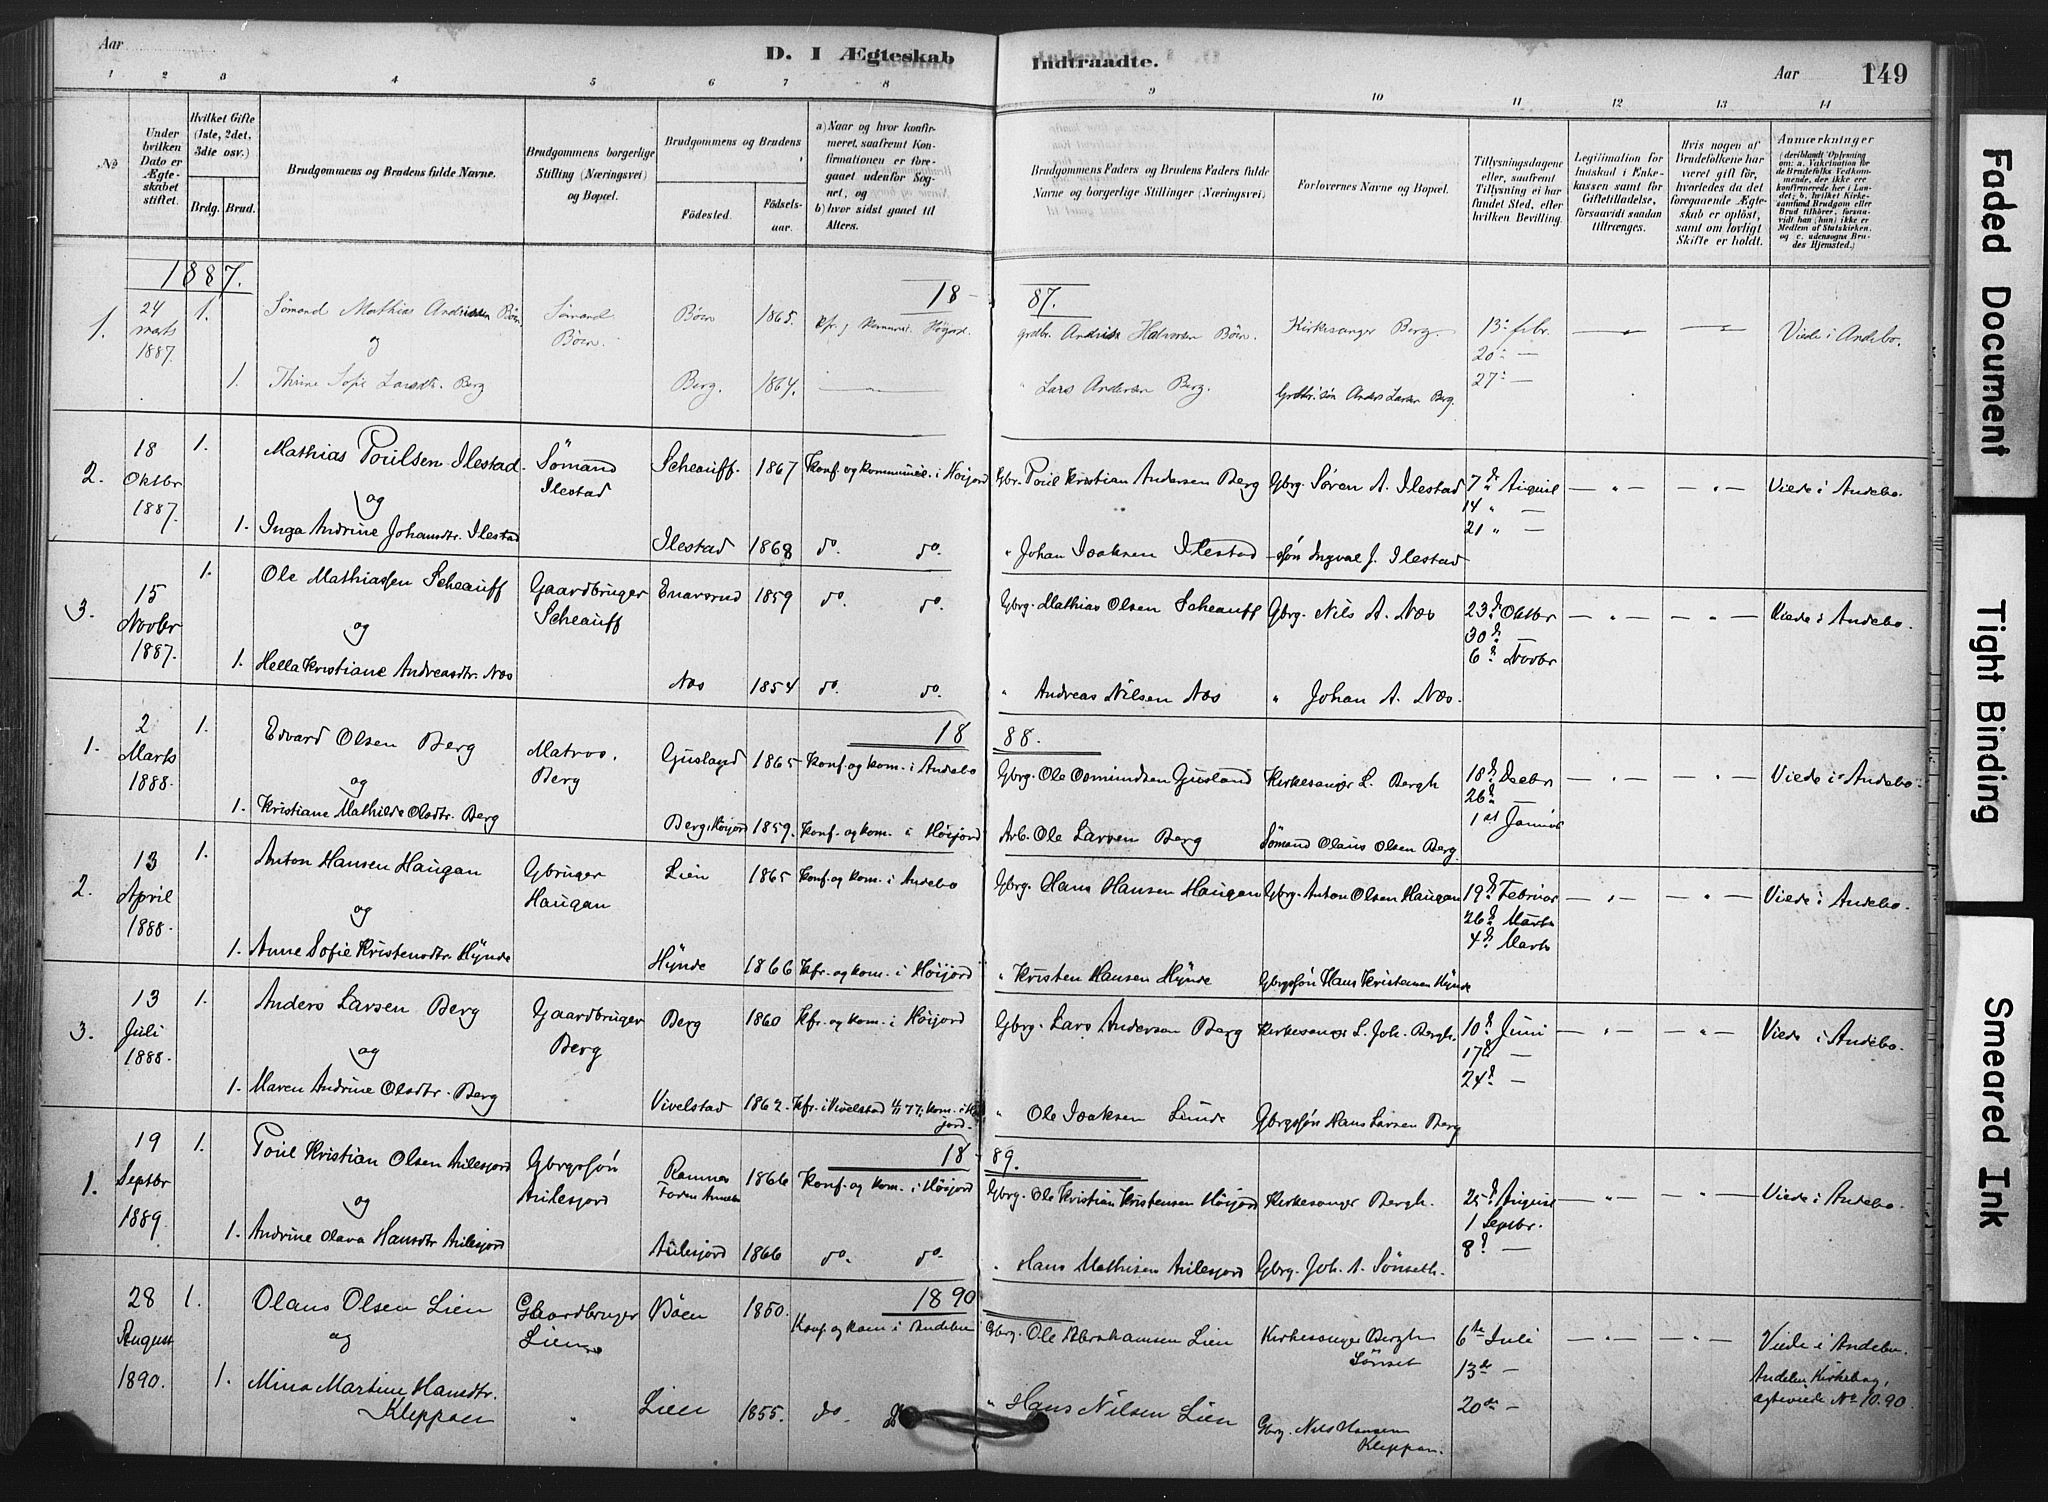 Aar
D. I Ægteskab
Indtraadte.
Aar
149
1 2 3 4 5 6 7 8 9 10 11 12 13 14
№
Under hvilken Dato er Ægteskabet stiftet.
Hvilket Gifte (1ste, 2det, 3die osv.)
Brdg. Brud.
Brudgommens og Brudens fulde Navne.
Brudgommens borgerlige Stilling (Næringsvei) og Bopæl.
Brudgommens og Brudens
Fødested.
Fødselsaar.
a) Naar og hvor konfirmeret, saafremt Konfirmationen er foregaaet udenfor Sognet, og
b) hvor sidst gaaet til Alters.
Brudgommens Faders og Brudens Faders fulde Navne og borgerlige Stillinger (Næringsvei)
Forlovernes Navne og Bopæl.
Tillysningsdagene eller, saafremt Tillysning ei har fundet Sted, efter hvilken Bevilling.
Legitimation for Indskud i Enkekassen samt for Giftetilladelse, forsaavidt saadan tiltrænges.
Hvis nogen af Brudefolkene har været gift før, hvorledes da det foregaaende Ægteskab er opløst, samt om lovligt Skifte er holdt.
Anmærkninger
(deriblandt Oplysning om: a. Vakcination for de Brudefolks Vedkommende, der ikke ere konfirmerede her i Landet; b. hvilket Kirkesamfund Brudgom eller Brud tilhører, forsaavidt han (hun) ikke er Medlem af Statskirken, og c. udensogns Brudes Hjemsted.)
1887.
18 - 87.
1. 24 Marts 1887. 1. Sømand Mathias Andersen Bøen Sømand Bøen. Bøen 1865. kfr. j kommun. Høijord. grdbr. Halvorsen Bøen. Kirkesanger Berg. 13de febr. 20de — 27de — Viede i Andebo.
og
1. Thrine Sofie Larsdtr. Berg Berg. 1864. — " — " Lars Andersen Berg. Grdbr. søn Anders Larsen Berg.
2. 18 Oktbr 1887. 1. Mathias Poulsen Ilestad Sømand Ilestad Scheauff. 1867 Konf. og kommunic. i Høijord Gbr. Poul Kristian Andersen Berg Gbrg. Søren A. Ilestad 7de August 14 " — 21 " — — " — — " — Viede i Andebo.
og
1. Inga Andrine Johansdtr. Ilestad Ilestad 1868 do. do. " Johan Isaksen Ilestad — søn Ingval J. Ilestad
3. 15 Novbr 1887. 1. Ole Mathiassen Scheauff Gaardbruger Scheauff 1859 do. do. Gbrg. Mathias Olsen Scheauff Gbrg. Nils A. Næs 23de Oktbr 30de — 6te Novbr — " — — " — Viede i Andebo.
og
1. Hella Kristiane Andreasdtr. Næs Næs 1854 do. do. " Andreas Nilsen Næs " Johan A. Næs.
18 88.
1. 2 Marts 1888. 1. Edvard Olsen Berg Matros. Berg Gusland 1865 Konf. og kom. i Andebo Gbrg. Ole Osmundsen Gusland Kirkesanger L. Bergh 18de Decbr 26de — 1st Januar — " — — " — Viede i Andebo.
og
1. Kristiane Mathilde Olsdtr. Berg Berg, Høijord 1859. Konf. og kom. i Høijord Arb. Ole Larsen Berg Sømand Olaus Olsen Berg.
2. 13 April 1888. 1. Anton Hansen Haugan Gbruger Haugan Lien 1865 Konf. og kom. i Andebo Gbrg. Hans Hansen Haugan Gbrg. Anton Olsen Haugan 19de Februar 26de Marts 4de Marts — " — — " — Viede i Andebo.
og
1. Anne Sofie Kristensdtr. Hynde Hynde 1866 Kfr. og kom. i Høijord " Kristen Hansen Hynde Gbrgssøn Hans Kristensen Hynde
3. 13 Juli 1888. 1. Anders Larsen Berg Gaardbruger Berg Berg 1860 Kfr. og kom. i Høijord Gbrg. Lars Andersen Berg Kirkesanger L. Joh. Bergh. 10de Juni 17de — 24de — — " — — " — Viede i Andebo.
og
1. Maren Andrine Olsdtr. Berg Vivelstad 1862. Kfr. i Vivelstad kom. i Høijord. " Ole Isaksen Lunde Gbrgssøn Hans Larsen Berg
18 - 89.
1. 19 Septbr 1889. 1. Poul Kristian Olsen Aulesjord Gbrgssøn Aulesjord Ramnes 1866 Konf. og kom. i Høijord Gbrg. Ole Kristian Kristensen Høijord Kirkesanger Bergh. 25de August 1 Septbr. 8de — — " — — " — Viede i Andebo.
og
1. Andrine Olava Hansdtr Aulesjord Aulesjord 1866 do. do. " Hans Mathisen Aulesjord Gbrg. Joh. A. Sønseth.
1890
28 August 1890. 1. Olaus Olsen Lien Gaardbruger Lien Bøen 1850. Konf. og kom i Andebu Gbrg. Ole Abrahamsen Lien Kirkesanger Bergh Sønset 6te Juli 13de — 20de — — " — — " — Viede i Andebu. Andebu Kirkebog, No 10.90.
og
1. Mina Martine Hansdtr. Kleppan " Lien 1855. do. " Hans Nilsen Lien Gbrg. Nils Hansen Kleppan.
Faded Document
Tight Binding
Smeared Ink